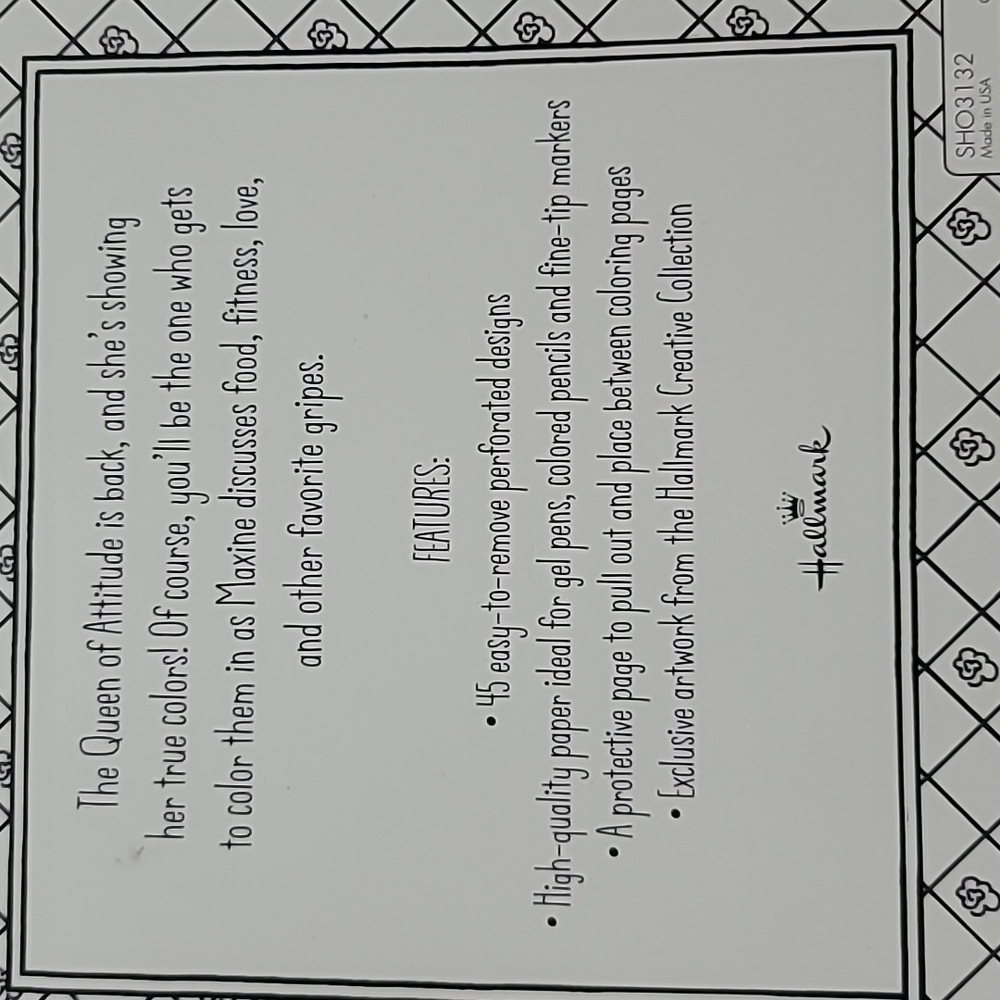 The Queen of Attitude is back, and she's showing
her true colors! Of course, you'll be the one who gets
to color them in as Maxine discusses food, fitness, love,
and other favorite gripes.
FEATURES:
• 45 easy-to-remove perforated designs
• High-quality paper ideal for gel pens, colored pencils and fine-tip markers
• A protective page to pull out and place between coloring pages
• Exclusive artwork from the Hallmark Creative Collection
Hallmark
SHO3132
Made in USA